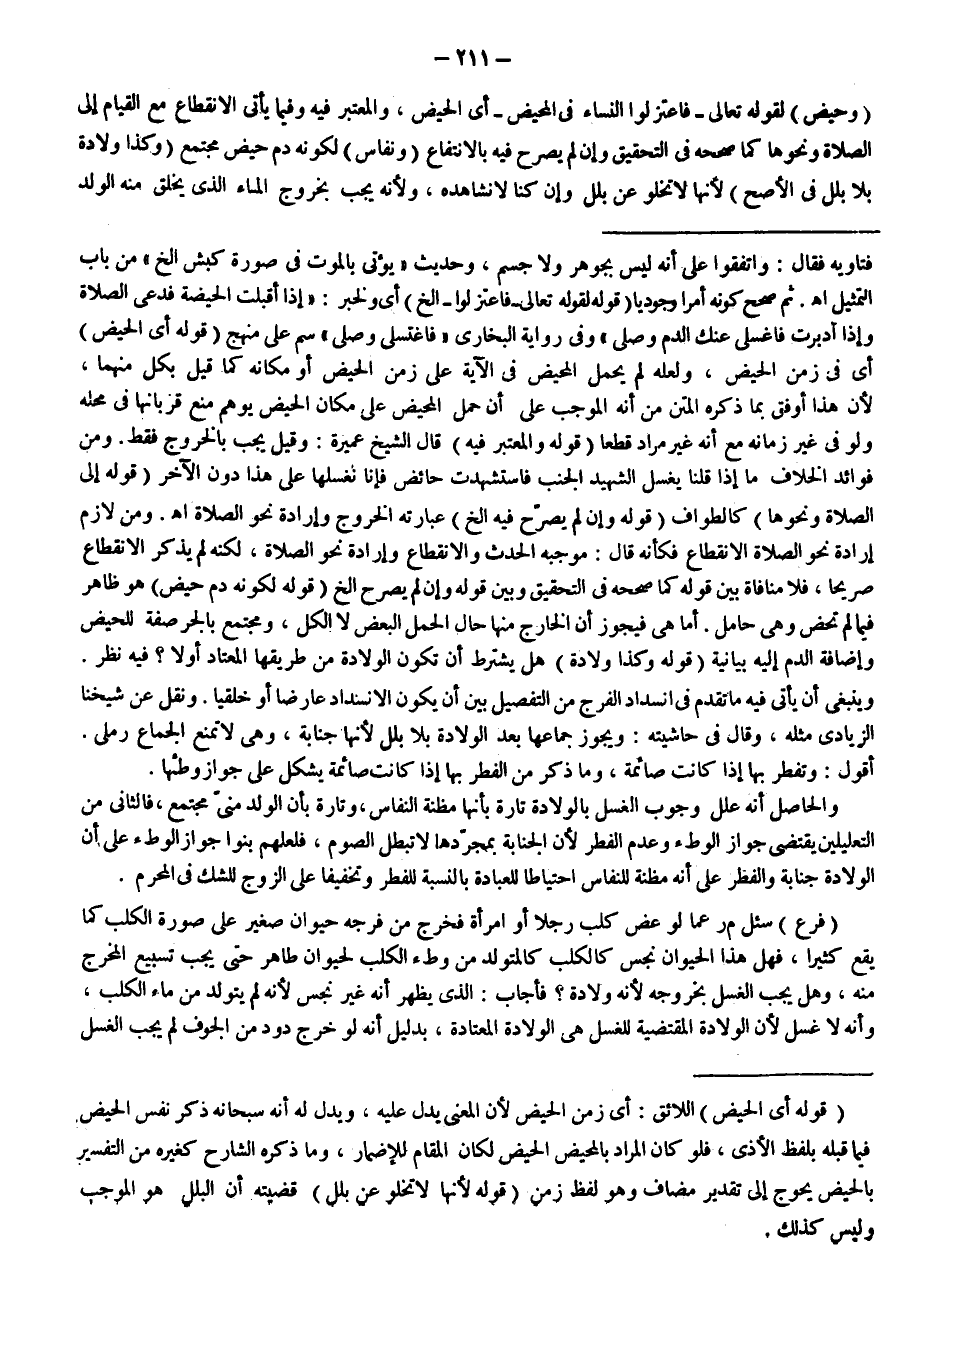 — ٢١١ —
( وحيض ) لقوله تعالى ـ فاعتزلوا النساء فى المحيض ـ أى الحيض ، والمعتبر فيه وفيما يأتى الانقطاع مع القيام إلى
الصلاة ونحوها كما صححه فى التحقيق وإن لم يصرح فيه بالانتفاع ( ونفاس ) لكونه دم حيض مجتمع ( وكذا ولادة
بلا بلل فى الأصح ) لأنها لا تخلو عن بلل وإن كنا لا نشاهده ، ولأنه يجب بخروج الماء الذى يخلق منه الولد
فتاويه فقال : واتفقوا على أنه ليس بجوهر ولا جسم ، وحديث « يؤتى بالموت فى صورة كبش الخ » من باب
التمثيل اه . ثم صحح كونه أمرا وجوديا ( قوله لقوله تعالى ـ فاعتزلوا ـ الخ ) أى ولخبر : « إذا أقبلت الحيضة فدعى الصلاة
وإذا أدبرت فاغسلى عنك الدم وصلى » وفى رواية البخارى « فاغتسلى وصلى » سم على منهج ( قوله أى الحيض )
أى فى زمن الحيض ، ولعله لم يحمل المحيض فى الآية على زمن الحيض أو مكانه كما قيل بكل منهما ،
لأن هذا أوفق بما ذكره المتن من أنه الموجب على أن حمل المحيض على مكان الحيض يوهم منع قربانها فى محله
ولو فى غير زمانه مع أنه غير مراد قطعا ( قوله والمعتبر فيه ) قال الشيخ عميرة : وقيل يجب بالخروج فقط . ومن
فوائد الخلاف ما إذا قلنا يغسل الشهيد الجنب فاستشهدت حائض فإنا نغسلها على هذا دون الآخر ( قوله إلى
الصلاة ونحوها ) كالطواف ( قوله وإن لم يصرّح فيه الخ ) عبارته الخروج وإرادة نحو الصلاة اه . ومن لازم
إرادة نحو الصلاة الانقطاع فكأنه قال : موجبه الحدث والانقطاع وإرادة نحو الصلاة ، لكنه لم يذكر الانقطاع
صريحا ، فلا منافاة بين قوله كما صححه فى التحقيق وبين قوله وإن لم يصرح الخ ( قوله لكونه دم حيض ) هو ظاهر
فيما لم تحض وهى حامل . أما هى فيجوز أن الخارج منها حال الحمل البعض لا الكل ، ومجتمع بالجر صفة للحيض
وإضافة الدم إليه بيانية ( قوله وكذا ولادة ) هل يشترط أن تكون الولادة من طريقها المعتاد أولا ؟ فيه نظر .
وينبغى أن يأتى فيه ما تقدم فى انسداد الفرج من التفصيل بين أن يكون الانسداد عارضا أو خلقيا . ونقل عن شيخنا
الزيادى مثله ، وقال فى حاشيته : ويجوز جماعها بعد الولادة بلا بلل لأنها جنابة ، وهى لا تمنع الجماع رملى .
أقول : وتفطر بها إذا كانت صائمة ، وما ذكر من الفطر بها إذا كانت صائمة يشكل على جواز وطئها .
والحاصل أنه علل وجوب الغسل بالولادة تارة بأنها مظنة النفاس ، وتارة بأن الولد منىّ مجتمع ، فالثانى من
التعليلين يقتضى جواز الوطء وعدم الفطر لأن الجنابة بمجرّدها لا تبطل الصوم ، فلعلهم بنوا جواز الوطء على أن
الولادة جنابة والفظر على أنه مظنة للنفاس احتياطا للعبادة بالنسبة للفطر وتخفيفا على الزوج للشك فى المحرم .
( فرع ) سئل مر عما لو عض كلب رجلا أو امرأة فخرج من فرجه حيوان صغير على صورة الكلب كما
يقع كثيرا ، فهل هذا الحيوان نجس كالكلب كالمتولد من وطء الكلب لحيوان طاهر حتى يجب تسبيع المخرج
منه ، وهل يجب الغسل بخروجه لأنه ولادة ؟ فأجاب : الذى يظهر أنه غير نجس لأنه لم يتولد من ماء الكلب ،
وأنه لا غسل لأن الولادة المقتضية للغسل هى الولادة المعتادة ، بدليل أنه لو خرج دود من الجوف لم يجب الغسل
( قوله أى الحيض ) اللائق : أى زمن الحيض لأن المعنى يدل عليه ، ويدل له أنه سبحانه ذكر نفس الحيض
فيما قبله بلفظ الأذى ، فلو كان المراد بالمحيض الحيض لكان المقام للإضمار ، وما ذكره الشارح كغيره من التفسير
بالحيض يحوج إلى تقدير مضاف وهو لفظ زمن ( قوله لأنها لا تخلو عن بلل ) قضيته أن البلل هو الموجب
وليس كذلك .